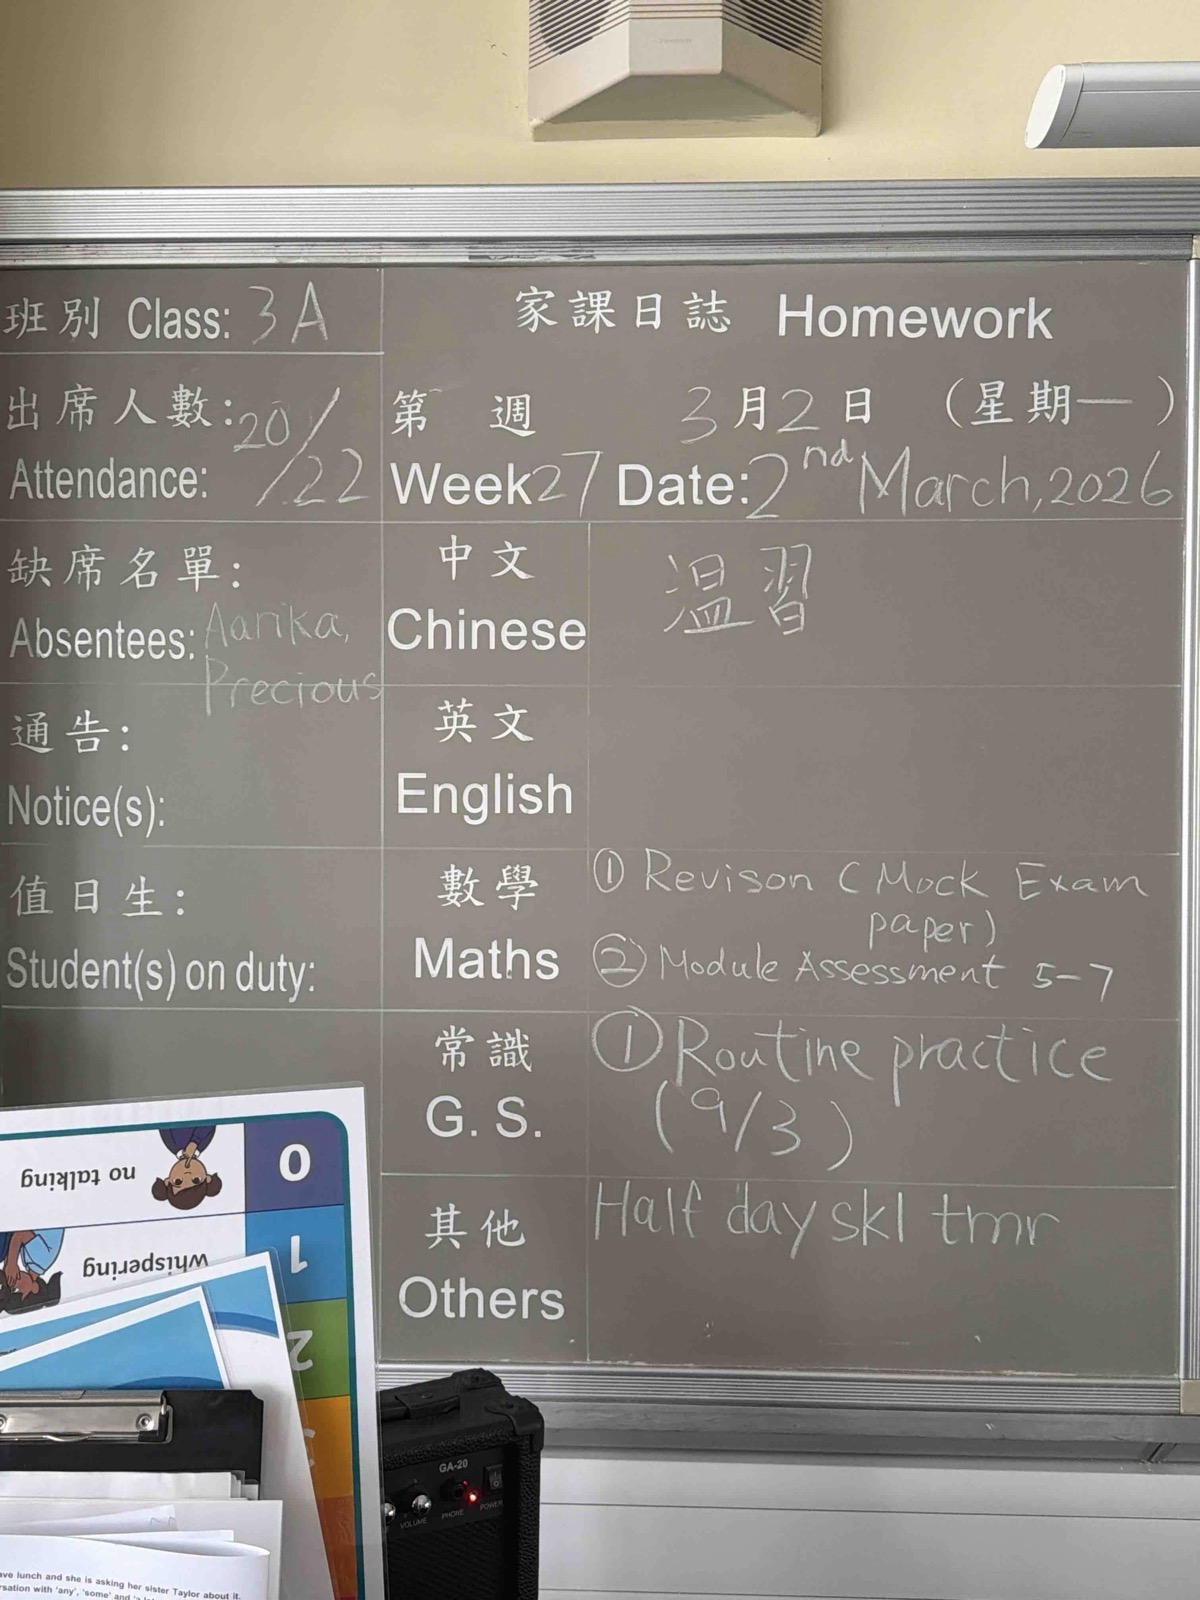 班別 Class: 3A
出席人數: 20/22
Attendance:
缺席名單:
Absentees: Aarika,
Precious
通告:
Notice(s):
值日生:
Student(s) on duty:
家課日誌 Homework
第 週 3月2日 (星期一)
Week 27 Date: 2nd March, 2026
中文
Chinese
温習
英文
English
數學
Maths
① Revison (Mock Exam
paper)
② Module Assessment 5-7
常識
G. S.
① Routine practice
(9/3)
其他
Others
Half day skl tmr
0
no talking
1
whispering
2
GA-20
VOLUME PHONE POWER
ave lunch and she is asking her sister Taylor about it.
rsation with 'any', 'some' and